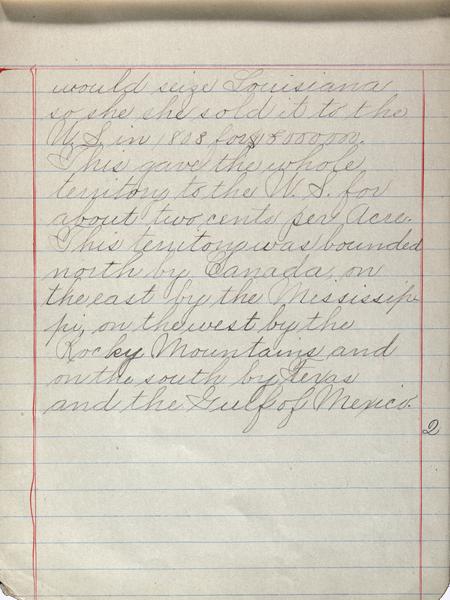 would seize Louisiana
so she she sold it to the
U.S. in 1803 for $15000000.
This gave the whole
territory to the U.S. for
about two cents per Acre.
This territory was bounded
north by Canada, on
the east by the Mississip-
pi, on the west by the
Rocky Mountains and
on the south by Texas
and the Gulf of Mexico.
2